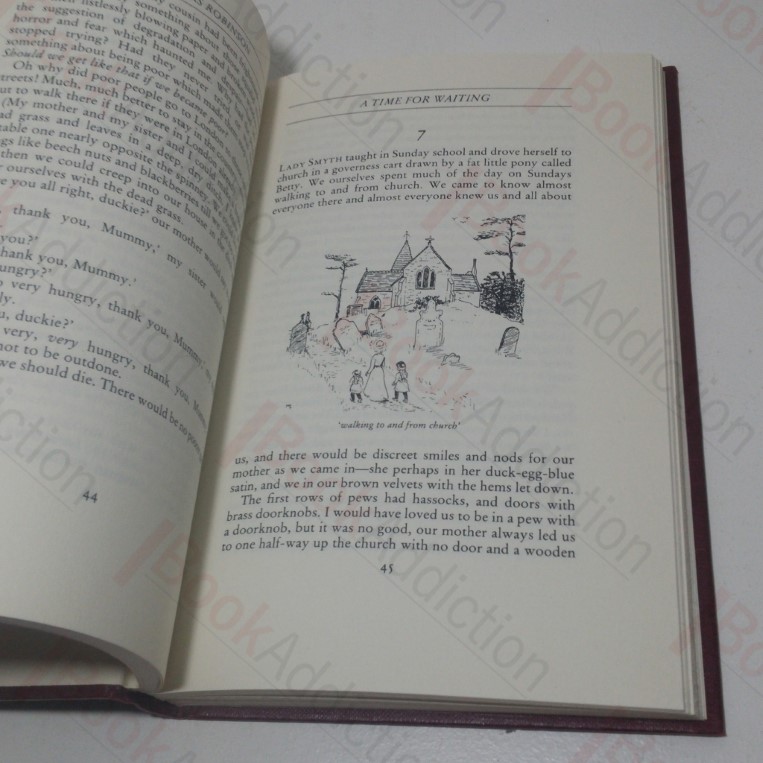 S ROBINSON
cousin had been
listlessly blowing paper and
the suggestion of degradation and
horror and fear which haunted me. Why had
stopped trying? Had they never tried?
something about being poor which made
Should we get like that if we became poor?
Oh why did poor people go to London
streets! Much, much better to stay in the
out to walk there if they were in London.
(My mother and my sister and I could
grass and leaves in a deep, dry
table one nearly opposite the spinney. We
like beech nuts and blackberries till
then we could creep into our house
ourselves with the dead grass.
you all right, duckie?' our mother would
thank you, Mummy,' my sister would
you?'
thank you, Mummy.'
hungry?'
very hungry, thank you, Mummy,'
ly.
u, duckie?'
very, very hungry, thank you, Mummy
not to be outdone.
we should die. There would be no
44
A TIME FOR WAITING
7
LADY SMYTH taught in Sunday school and drove herself to
church in a governess cart drawn by a fat little pony called
Betty. We ourselves spent much of the day on Sundays
walking to and from church. We came to know almost
everyone there and almost everyone knew us and all about
'walking to and from church'
us, and there would be discreet smiles and nods for our
mother as we came in—she perhaps in her duck-egg-blue
satin, and we in our brown velvets with the hems let down.
The first rows of pews had hassocks, and doors with
brass doorknobs. I would have loved us to be in a pew with
a doorknob, but it was no good, our mother always led us
to one half-way up the church with no door and a wooden
45
BookAddiction